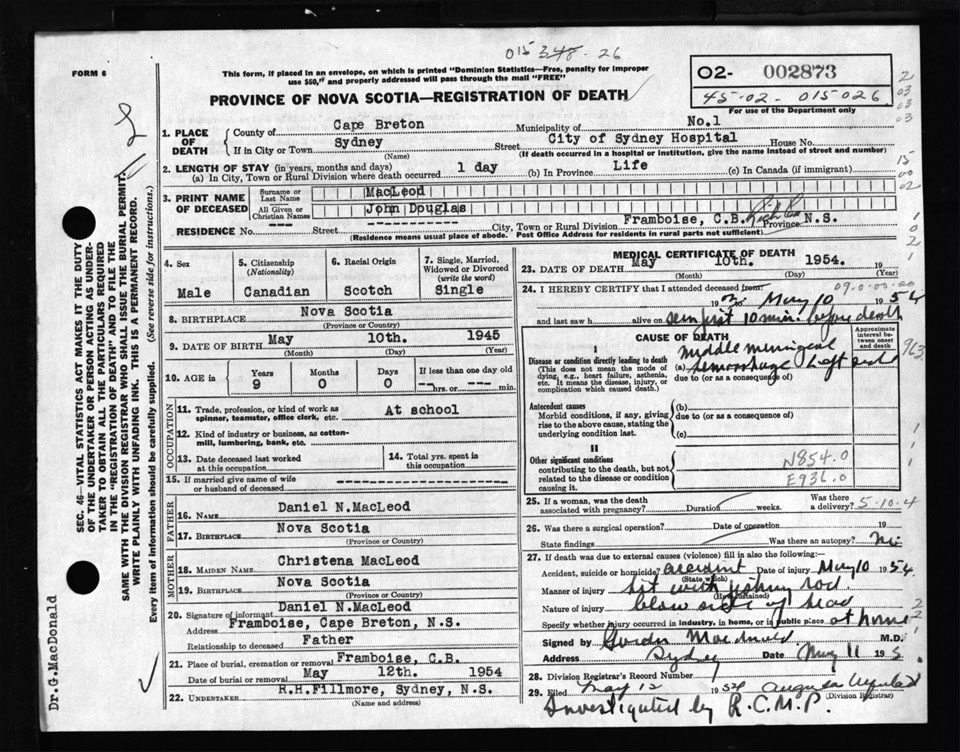 015 348-26
FORM 6
This form, if placed in an envelope, on which is printed "Dominion Statistics—Free, penalty for improper
use $50," and properly addressed will pass through the mail "FREE"
PROVINCE OF NOVA SCOTIA—REGISTRATION OF DEATH
02- 002873
45-02- 015026
For use of the Department only
1. PLACE OF DEATH
County of Cape Breton Municipality of No.1
If in City or Town Sydney Street City of Sydney Hospital House No.
(Name) (If death occurred in a hospital or institution, give the name instead of street and number)
2. LENGTH OF STAY (in years, months and days)
(a) In City, Town or Rural Division where death occurred 1 day (b) In Province Life (c) In Canada (if immigrant)
3. PRINT NAME OF DECEASED
Surname or Last Name MacLeod
All Given or Christian Names John Douglas
RESIDENCE No. --- Street ---------- City, Town or Rural Division Framboise, C.B. Province N.S.
(Residence means usual place of abode. Post Office Address for residents in rural parts not sufficient)
4. Sex
Male
5. Citizenship (Nationality)
Canadian
6. Racial Origin
Scotch
7. Single, Married, Widowed or Divorced (write the word)
Single
8. BIRTHPLACE Nova Scotia
(Province or Country)
9. DATE OF BIRTH May 10th. 1945
(Month) (Day) (Year)
10. AGE in Years 9 Months 0 Days 0 If less than one day old -- hrs. or -- min.
OCCUPATION
11. Trade, profession, or kind of work as spinner, teamster, office clerk, etc. At school
12. Kind of industry or business, as cotton-mill, lumbering, bank, etc.
13. Date deceased last worked at this occupation
14. Total yrs. spent in this occupation
15. If married give name of wife or husband of deceased
FATHER
16. NAME Daniel N.MacLeod
17. BIRTHPLACE Nova Scotia
(Province or Country)
MOTHER
18. MAIDEN NAME Christena MacLeod
19. BIRTHPLACE Nova Scotia
(Province or Country)
20. Signature of informant Daniel N.MacLeod
Address Framboise, Cape Breton, N.S.
Relationship to deceased Father
21. Place of burial, cremation or removal Framboise, C.B.
Date of burial or removal May 12th. 1954
22. UNDERTAKER R.H.Fillmore, Sydney, N.S.
(Name and address)
MEDICAL CERTIFICATE OF DEATH
23. DATE OF DEATH May 10th. 1954. 19
(Month) (Day) (Year)
24. I HEREBY CERTIFY that I attended deceased from
09.0.00.00
19 on May 10 1954
and last saw h alive on seen just 10 min. before death
CAUSE OF DEATH
Approximate interval between onset and death
I
Disease or condition directly leading to death
(This does not mean the mode of dying, e.g., heart failure, asthenia, etc. It means the disease, injury, or complication which caused death.)
(a) Middle meningeal hemorrhage Left side
due to (or as a consequence of)
963
Antecedent causes
Morbid conditions, if any, giving rise to the above cause, stating the underlying condition last.
(b)
due to (or as a consequence of)
(c)
II
Other significant conditions
contributing to the death, but not related to the disease or condition causing it.
N854.0
E936.0
25. If a woman, was the death associated with pregnancy? Duration weeks. Was there a delivery? 5-10-4
26. Was there a surgical operation? Date of operation 19
State findings Was there an autopsy? No
27. If death was due to external causes (violence) fill in also the following:
Accident, suicide or homicide? accident Date of injury May 10 1954
(State which)
Manner of injury hit with fishing rod
(How sustained)
Nature of injury blow side of head
Specify whether injury occurred in industry, in home, or in public place at home
Signed by Gordon MacDonald M.D.
Address Sydney Date May 11 195
28. Division Registrar's Record Number
29. Filed May 12 1954
(Division Registrar)
Investigated by R.C.M.P.
SEC. 46—VITAL STATISTICS ACT MAKES IT THE DUTY
OF THE UNDERTAKER OR PERSON ACTING AS UNDER-
TAKER TO OBTAIN ALL THE PARTICULARS REQUIRED
IN THE "REGISTRATION OF DEATH" AND TO FILE THE
SAME WITH THE DIVISION REGISTRAR WHO SHALL ISSUE THE BURIAL PERMIT.
WRITE PLAINLY WITH UNFADING INK. THIS IS A PERMANENT RECORD.
Every item of information should be carefully supplied. (See reverse side for instructions.)
Dr.G.MacDonald